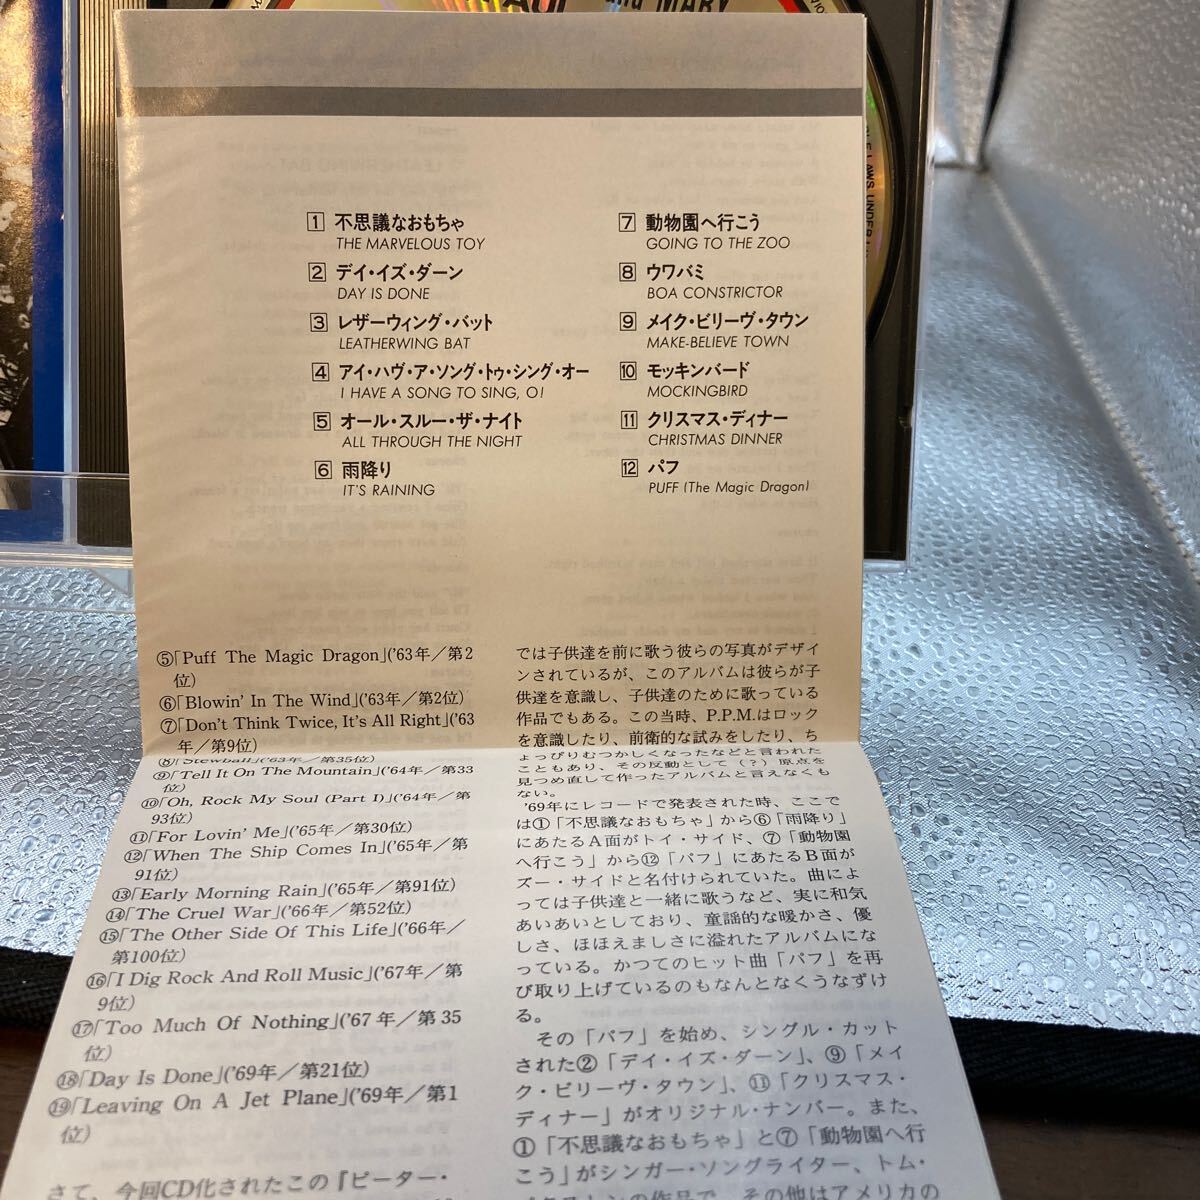 PAUL and MARY
1 不思議なおもちゃ
THE MARVELOUS TOY
2 デイ・イズ・ダーン
DAY IS DONE
3 レザーウィング・バット
LEATHERWING BAT
4 アイ・ハヴ・ア・ソング・トゥ・シング・オー
I HAVE A SONG TO SING, O!
5 オール・スルー・ザ・ナイト
ALL THROUGH THE NIGHT
6 雨降り
IT'S RAINING
7 動物園へ行こう
GOING TO THE ZOO
8 ウワバミ
BOA CONSTRICTOR
9 メイク・ビリーヴ・タウン
MAKE-BELIEVE TOWN
10 モッキンバード
MOCKINGBIRD
11 クリスマス・ディナー
CHRISTMAS DINNER
12 パフ
PUFF (The Magic Dragon)
⑤「Puff The Magic Dragon」('63年／第2
位)
⑥「Blowin' In The Wind」('63年／第2位)
⑦「Don't Think Twice, It's All Right」('63
年／第9位)
⑧「Stewball」('63年／第35位)
⑨「Tell It On The Mountain」('64年／第33
位)
⑩「Oh, Rock My Soul (Part I)」('64年／第
93位)
⑪「For Lovin' Me」('65年／第30位)
⑫「When The Ship Comes In」('65年／第
91位)
⑬「Early Morning Rain」('65年／第91位)
⑭「The Cruel War」('66年／第52位)
⑮「The Other Side Of This Life」('66年／
第100位)
⑯「I Dig Rock And Roll Music」('67年／第
9位)
⑰「Too Much Of Nothing」('67年／第35
位)
⑱「Day Is Done」('69年／第21位)
⑲「Leaving On A Jet Plane」('69年／第1
位)
さて、今回CD化されたこの『ピーター・
では子供達を前に歌う彼らの写真がデザイ
ンされているが、このアルバムは彼らが子
供達を意識し、子供達のために歌っている
作品でもある。この当時、P.P.M.はロック
を意識したり、前衛的な試みをしたり、ち
ょっぴりむつかしくなったなどと言われた
こともあり、その反動として（？）原点を
見つめ直して作ったアルバムと言えなくも
ない。
'69年にレコードで発表された時、ここで
は①「不思議なおもちゃ」から⑥「雨降り」
にあたるA面がトイ・サイド、⑦「動物園
へ行こう」から⑫「パフ」にあたるB面が
ズー・サイドと名付けられていた。曲によ
っては子供達と一緒に歌うなど、実に和気
あいあいとしており、童謡的な暖かさ、優
しさ、ほほえましさに溢れたアルバムにな
っている。かつてのヒット曲「パフ」を再
び取り上げているのもなんとなくうなずけ
る。
その「パフ」を始め、シングル・カット
された②「デイ・イズ・ダーン」、⑨「メイ
ク・ビリーヴ・タウン」、⑪「クリスマス・
ディナー」がオリジナル・ナンバー。また、
①「不思議なおもちゃ」と⑦「動物園へ行
こう」がシンガー・ソングライター、トム・
パクストンの作品で、その他はアメリカの